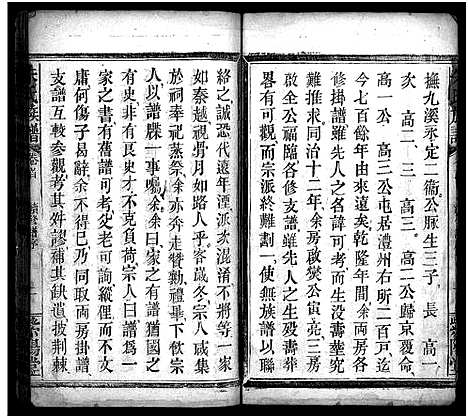 撫九溪永定二衞公脉生三子長高一
次高二三高三高二公歸京覆命
高一公高三公屯居澧州右所二百戸迄
今七百餘年由來遠矣乾隆年間余兩房
掛譜雖先人之名諱可考而生没壽華究
未及詳同治十二年余房啟爕公寅亮三房
學聖公福臨各修支譜雖先人之生没壽
畧有可觀而宗派終難劃一使無族譜以聯
絡之誠恐代遠年湮派亥混淆不將等一家
如秦越視骨月如路人乎客歳冬宗八咸集
於祠奉祀蒸祭余亦奔走襄贊勸畢下攸宗
人以譜牒一事囑余余曰家之有譜猶國之
有史非有良史才不克負荷宗人曰譜者
譜其世系耳譜可考父老可詢就其有而
庸何傷子曷辭余不得已乃同取兩房掛譜
支譜互較參觀考其舛謬補其缺遺披荆棘